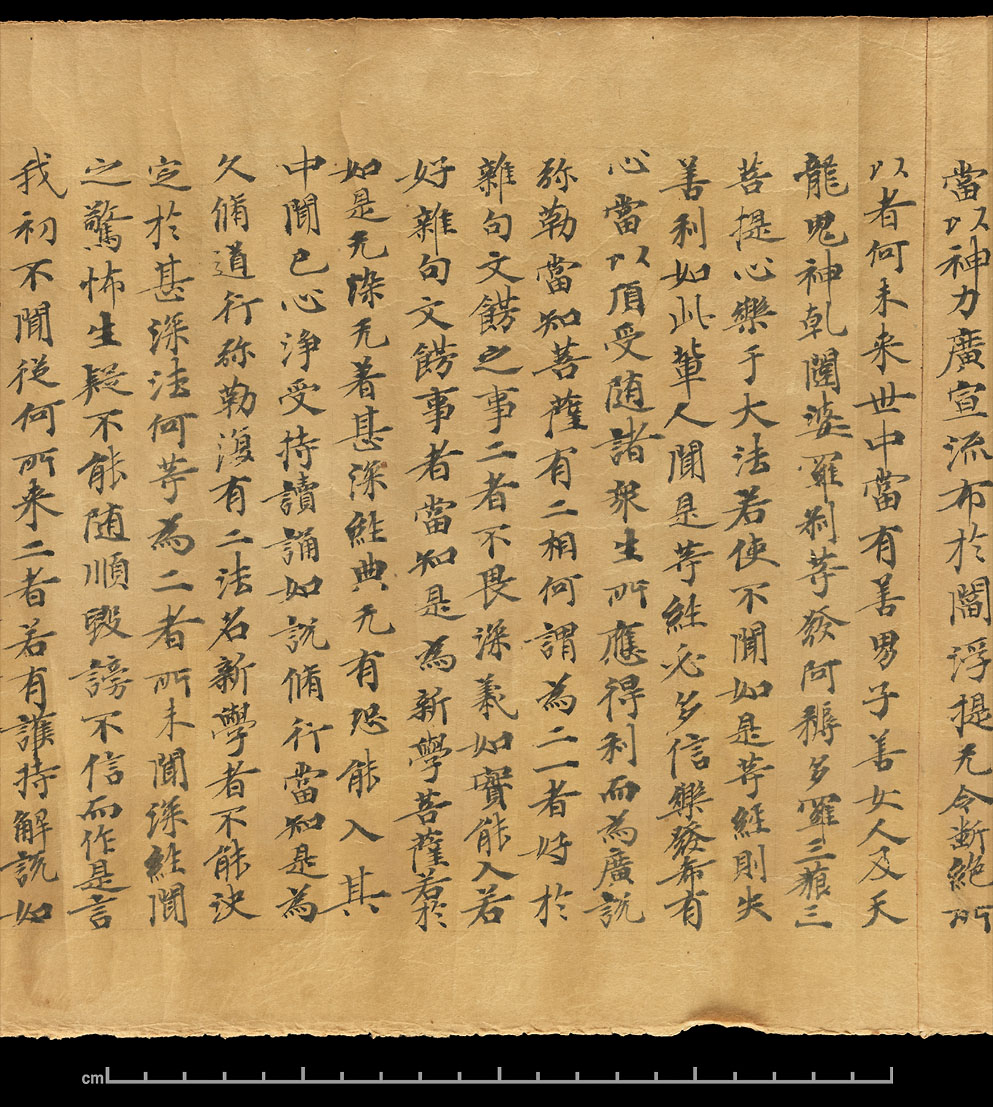 當以神力廣宣流布於閻浮提无令断絶所
以者何未来世中當有善男子善女人及天
龍鬼神乹闥婆羅刹等發阿耨多羅三藐三
菩提心樂于大法若使不聞如是等經則失
善利如此軰人聞是等經必多信樂發希有
心當以頂受随諸衆生所應得利而為廣說
弥勒當知菩薩有二相何謂為二一者好於
雜句文餝之事二者不畏深義如實能入若
好雜句文餝事者當知是為新學菩薩若於
如是无染无著甚深經典无有恐能入其
中聞已心淨受持讀誦如說脩行當知是為
久脩道行弥勒復有二法名新學者不能決
定於甚深法何等為二者所未聞深經聞
之驚怖生疑不能随順毀謗不信而作是言
我初不聞從何所来二者若有護持解說如
cm